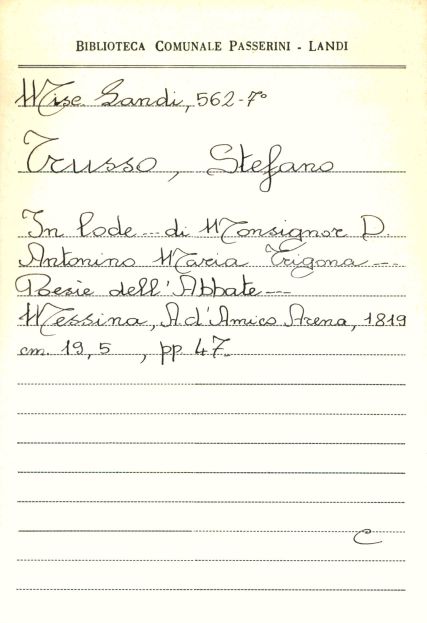 BIBLIOTECA COMUNALE PASSERINI - LANDI
Misc. Landi, 562-7°
Trusso, Stefano
In lode --- di Monsignor D.
Antonino Maria Trigona ---
Poesie dell'Abbate ---
Messina, A d'Amico Arena, 1819
cm. 19,5 , pp. 47.
C